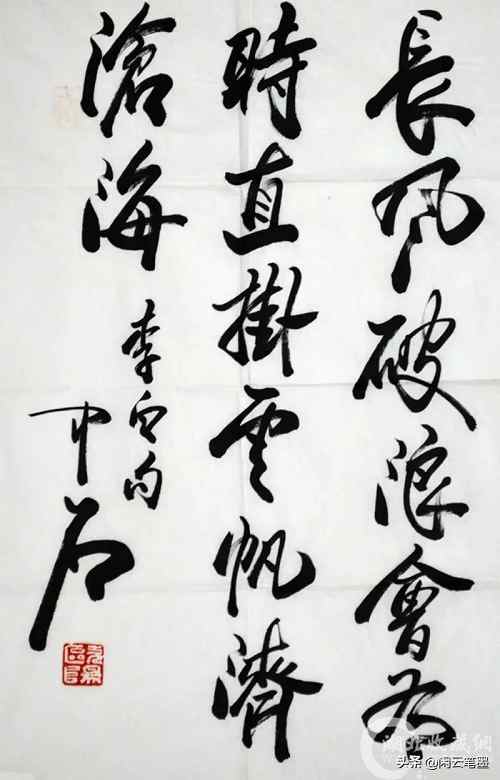 長風破浪會有
時直掛雲帆濟
滄海
李白句
中石
头条 @闲云笔墨